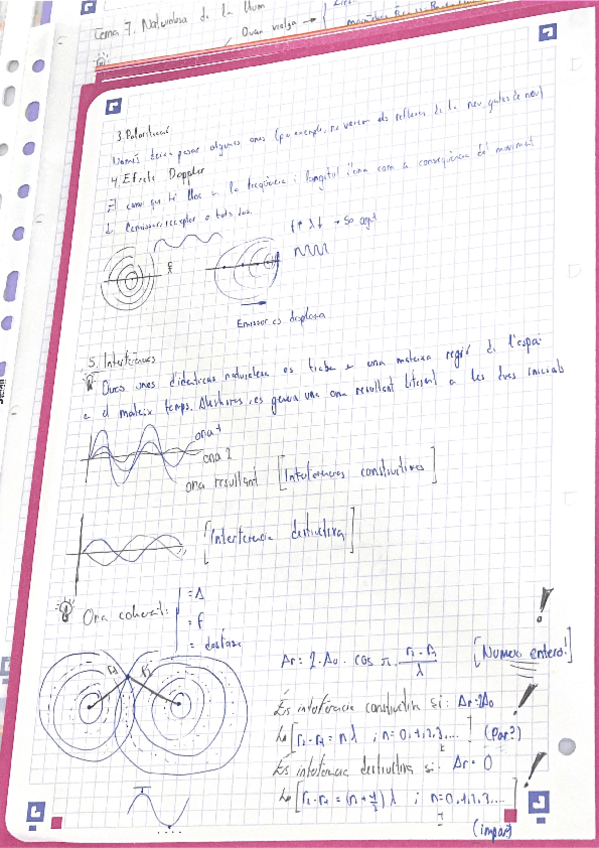 Tema 7. Naturalesa de la llum
Ones viatge →
3. Polarització
Només deixa passar algunes ones (per exemple, no veure els reflexes de la neu, gafes de neu)
4. Efecte Doppler
El canvi que té lloc en la freqüència i longitud d'ona com a conseqüència del moviment
de l'emissor, receptor o tots dos.
f↑ λ↓ → So agut
Emissor es desplaça
5. Interferències
Dues ones d'idèntiques naturalesa es troben en una mateixa regió de l'espai
en el mateix temps. Aleshores, es genera una ona resultant diferent a les dues inicials
ona 1
ona 2
ona resultant [Interferències constructives]
[Interferència destructiva]
Ona coherent:
= λ
= f
= desfase
Ar = 2 · A₀ · cos π · r₂ - r₁ / λ [Numero entero!]
És interferència constructiva si: Ar = 2A₀
↳ [r₂ - r₁ = nλ ; n = 0, 1, 2, 3, ... ] (Par?)
És interferència destructiva si: Ar = 0
↳ [r₂ - r₁ = (n + 1/2) λ ; n = 0, 1, 2, 3, ... ]
(impar)